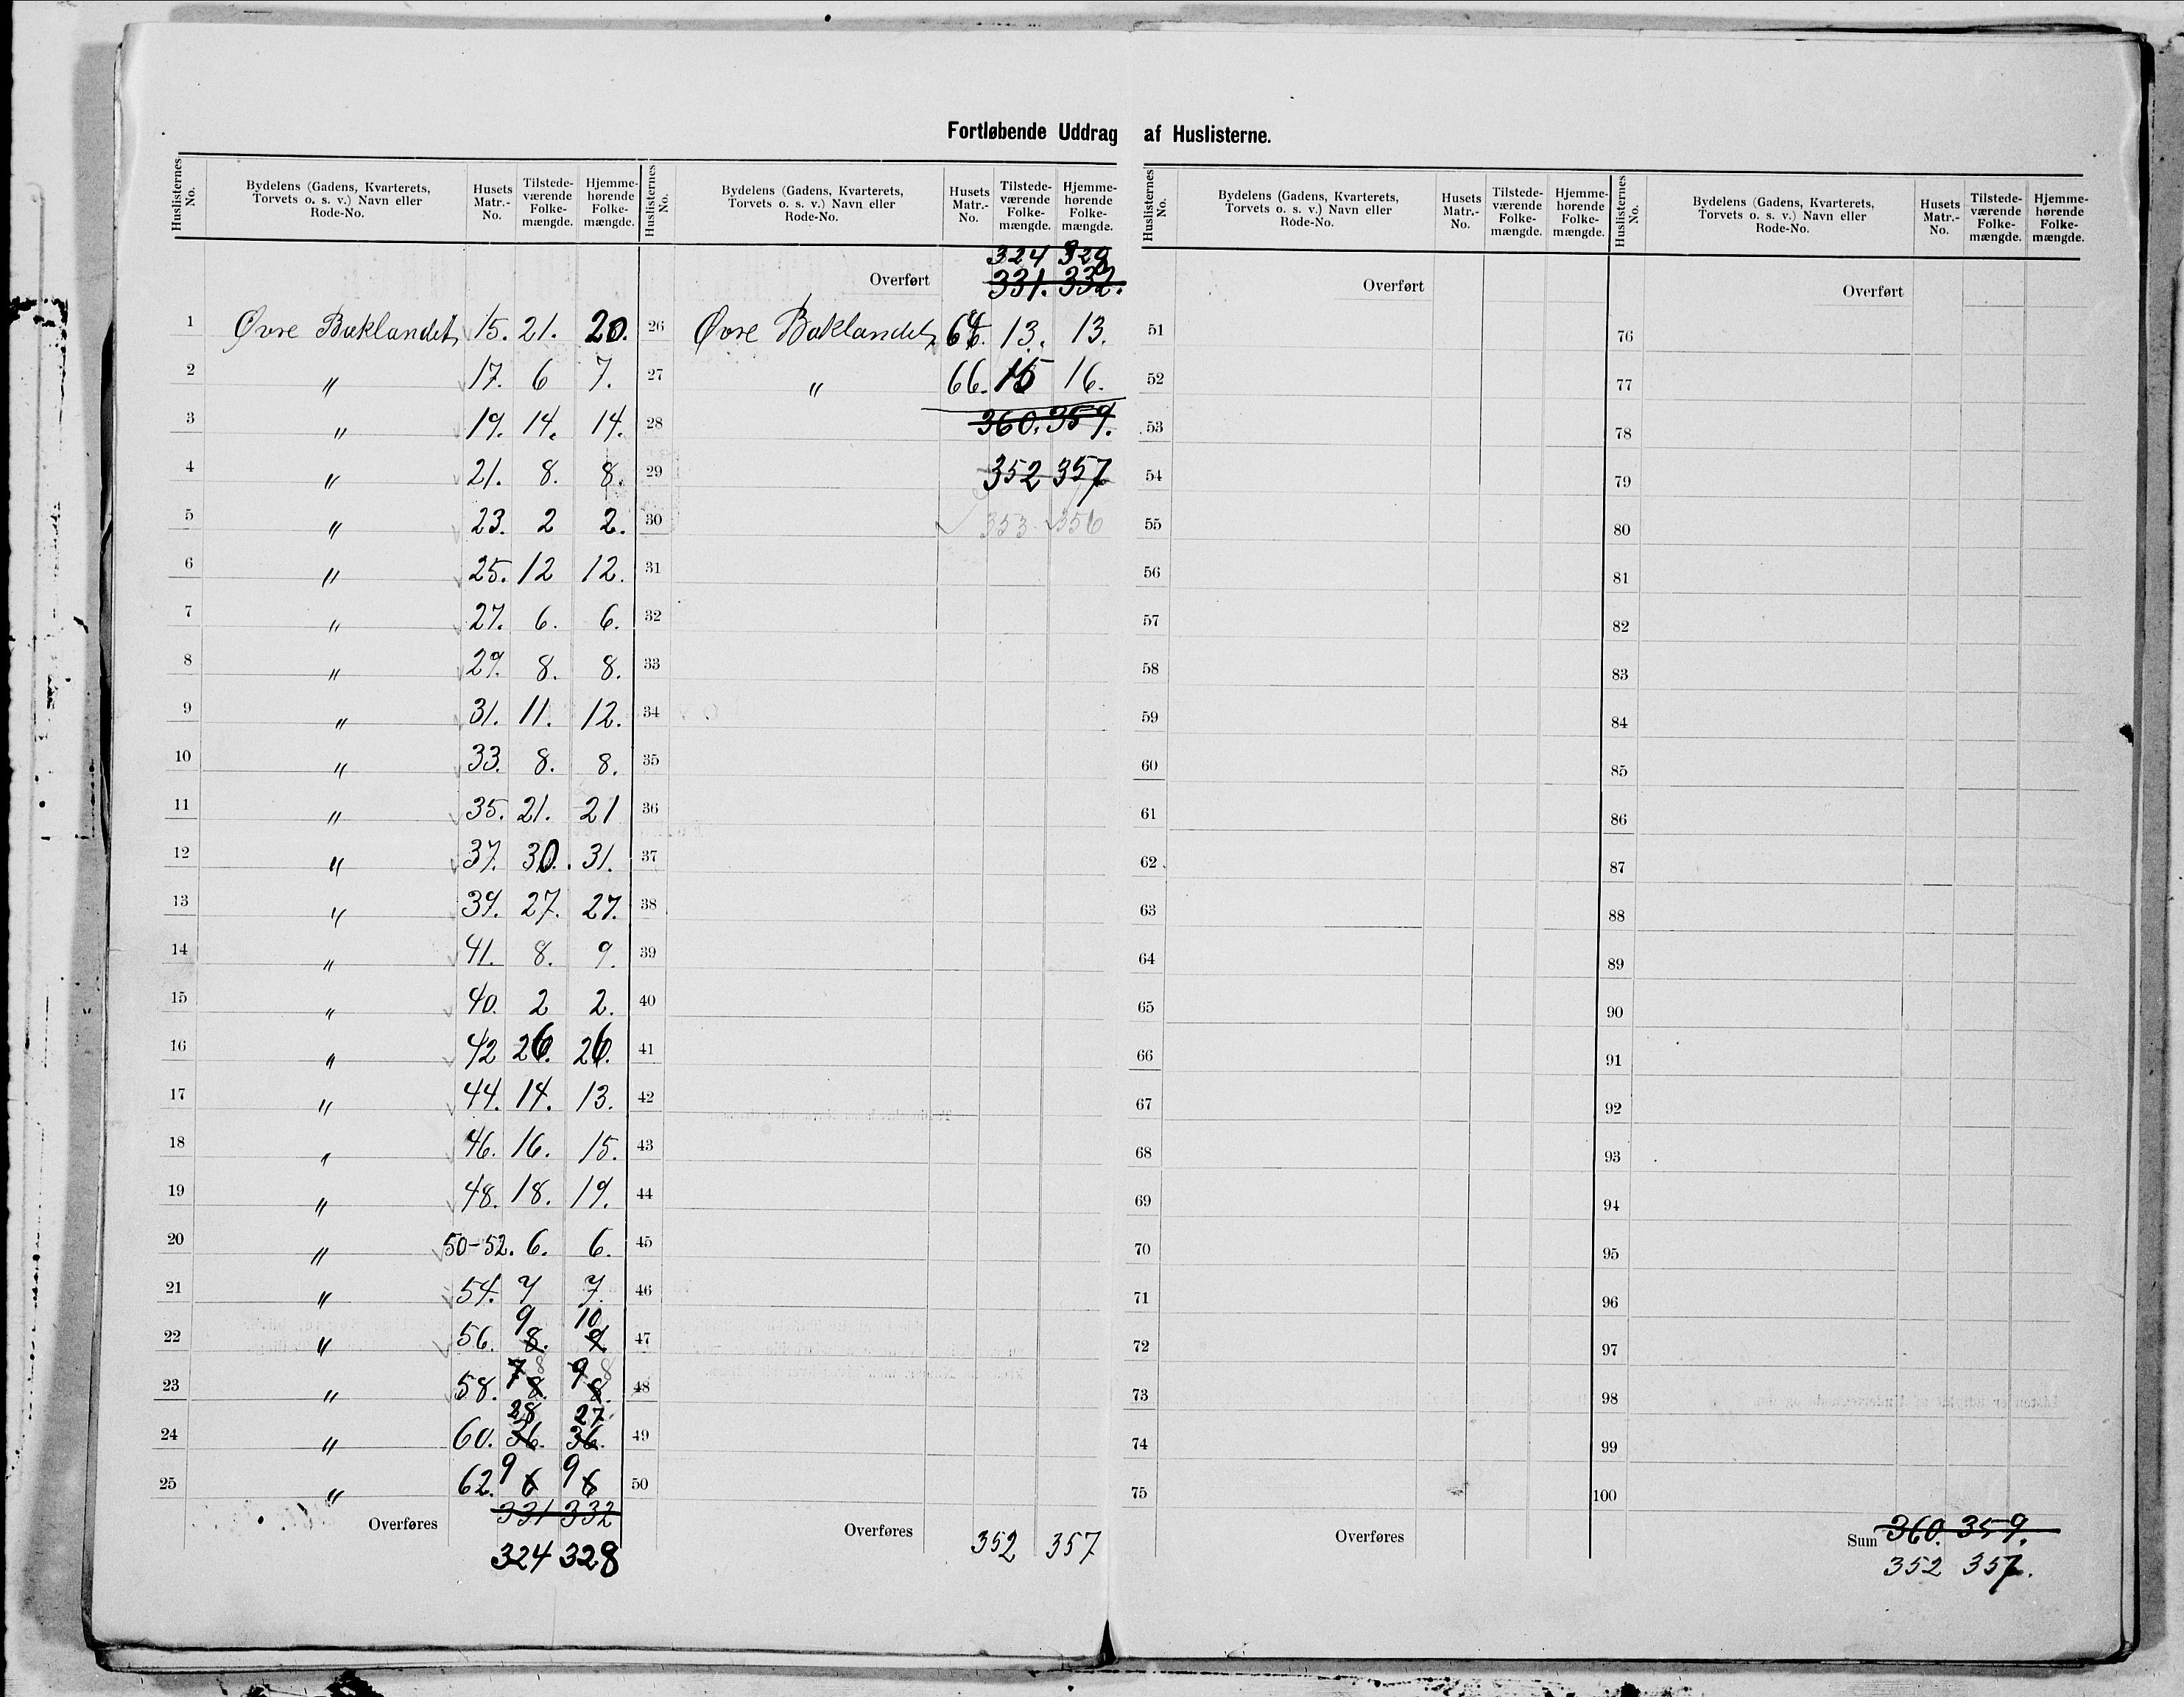 Fortløbende Uddrag af Huslisterne.
Huslisternes No. Bydelens (Gadens, Kvarterets, Torvets o. s. v.) Navn eller Rode-No. Husets Matr.-No. Tilstedeværende Folkemængde. Hjemmehørende Folkemængde.
1 Øvre Baklandet 15. 21. 20.
2 " 17. 6 7.
3 " 19. 14. 14.
4 " 21. 8. 8.
5 " 23. 2 2.
6 " 25. 12 12.
7 " 27. 6. 6.
8 " 29. 8. 8.
9 " 31. 11. 12.
10 " 33. 8. 8.
11 " 35. 21. 21
12 " 37. 30. 31.
13 " 39. 27. 27.
14 " 41. 8. 9.
15 " 40. 2 2.
16 " 42 26. 26.
17 " 44. 14. 13.
18 " 46. 16. 15.
19 " 48. 18. 19.
20 " 50-52. 6. 6.
21 " 54. 7 7.
9 10
22 " 56. 8. 9
7 8 9 8
23 " 58. 8. 8.
28 27.
24 " 60. 36. 36.
9 9
25 " 62. 6 6
Overføres 331 332
324 328
Huslisternes No. Bydelens (Gadens, Kvarterets, Torvets o. s. v.) Navn eller Rode-No. Husets Matr.-No. Tilstedeværende Folkemængde. Hjemmehørende Folkemængde.
324 328
Overført 331. 332.
26 Øvre Baklandet 64. 13. 13.
27 " 66. 15 16.
28 360. 359.
29 352 357
30 353 356
31
32
33
34
35
36
37
38
39
40
41
42
43
44
45
46
47
48
49
50
Overføres 352 357
Huslisternes No. Bydelens (Gadens, Kvarterets, Torvets o. s. v.) Navn eller Rode-No. Husets Matr.-No. Tilstedeværende Folkemængde. Hjemmehørende Folkemængde.
Overført
51
52
53
54
55
56
57
58
59
60
61
62
63
64
65
66
67
68
69
70
71
72
73
74
75
Overføres
Huslisternes No. Bydelens (Gadens, Kvarterets, Torvets o. s. v.) Navn eller Rode-No. Husets Matr.-No. Tilstedeværende Folkemængde. Hjemmehørende Folkemængde.
Overført
76
77
78
79
80
81
82
83
84
85
86
87
88
89
90
91
92
93
94
95
96
97
98
99
100
Sum 360. 359.
352 357.